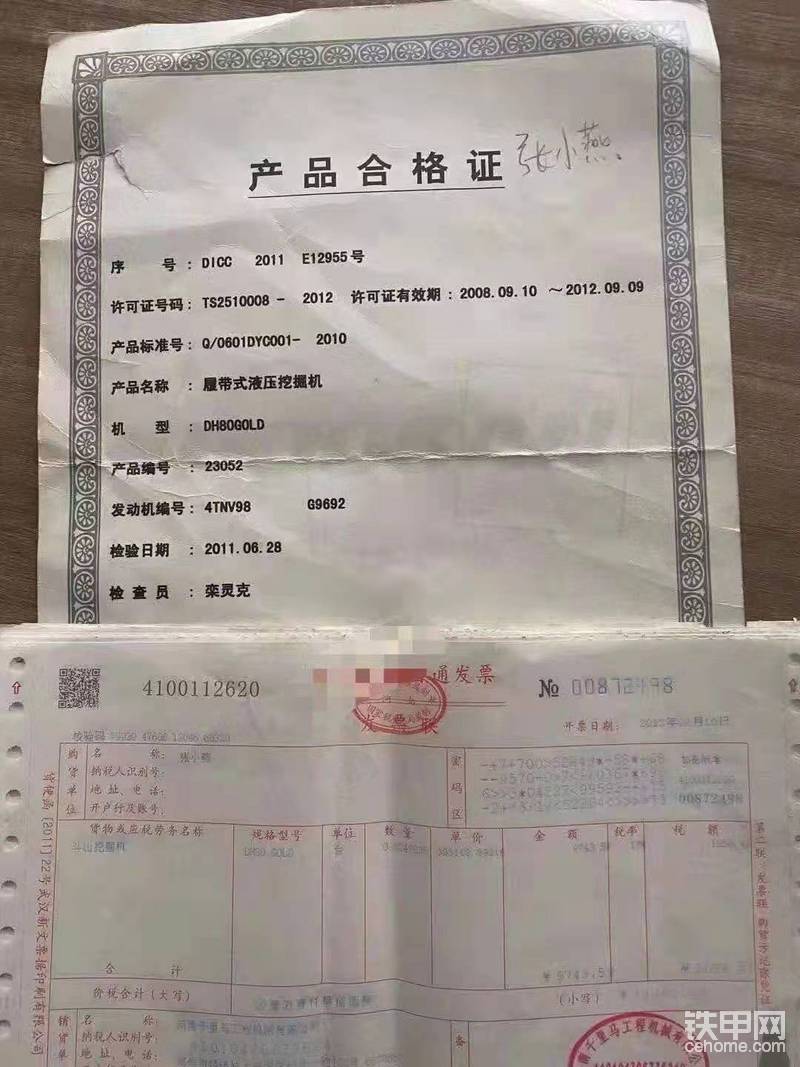 产品合格证 张小燕
序 号：DICC 2011 E12955号
许可证号码：TS2510008- 2012 许可证有效期：2008.09.10 ～2012.09.09
产品标准号：Q/0601DYC001- 2010
产品名称：履带式液压挖掘机
机 型：DH80GOLD
产品编号：23052
发动机编号：4TNV98 G9692
检验日期：2011.06.28
检查员：栾灵克
4100112620
通发票
№ 00872498
发票联
开票日期：
校验码
购货单位
名 称：张小燕
纳税人识别号：
地址、电话：
开户行及账号：
密码区
4100112620
00872498
货物或应税劳务名称 规格型号 单位 数量 单价 金额 税率 税额
斗山挖掘机 台
合 计
价税合计（大写） （小写）
销货
名 称：河南千里马工程机械有限公司
纳税人识别号：
地址、电话：
备
货便函〔2011〕22号武汉新文票据印刷有限公司
第二联：发票联 购货方记账凭证
南千里马工程机械有限公
铁甲网
cehome.com